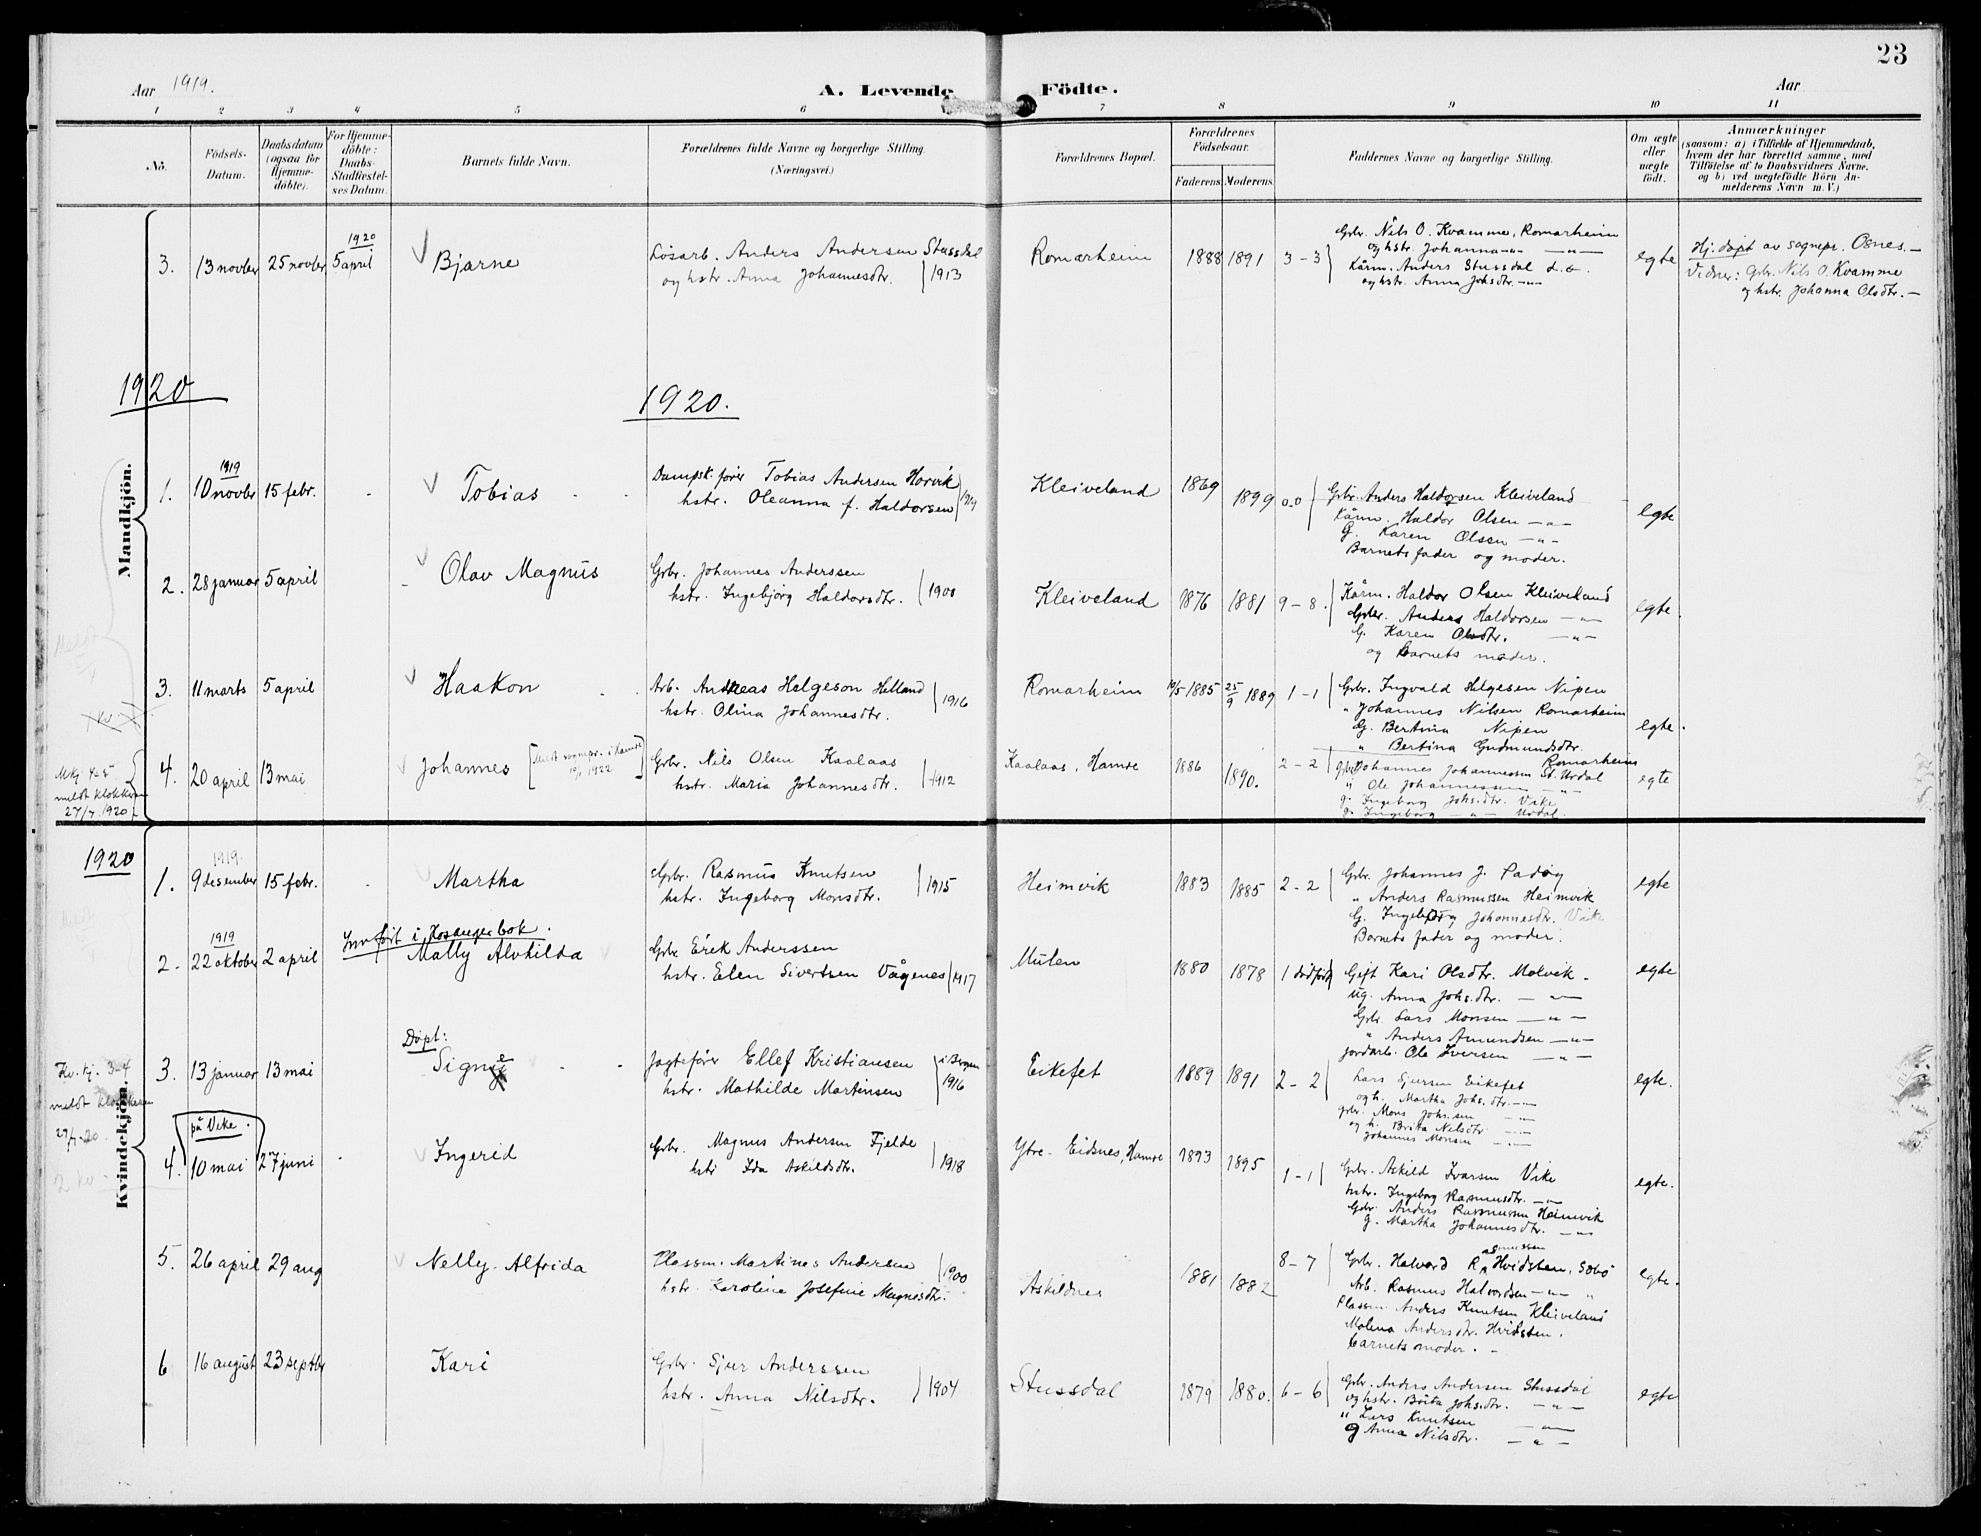 23
Aar 1919.
A. Levende Födte.
Aar
1 2 3 4 5 6 7 8 9 10 11
No.
Födsels-Datum.
Daabsdatum (ogsaa for Hjemme-döbte).
For Hjemme-döbte: Daabs-Stadfæstel-ses Datum.
Barnets fulde Navn.
Forældrenes fulde Navne og borgerlige Stilling.
(Næringsvei.)
Forældrenes Bopæl.
Forældrenes Födselsaar.
Faderens Moderens
Faddernes Navne og borgerlige Stilling.
Om ægte eller uægte födt.
Anmærkninger
(saasom: a) i Tilfælde af Hjemmedaab,
hvem der har forrettet samme, med
Tilföielse af to Daabsvidners Navne.
og b) ved uægtefödte Börn An-
melderens Navn m. V.)
Mandkjön.
3. 13 novber 25 novber 1920 5 april Bjarne
Løsarb. Anders Andersen Stussdal
og hstr. Anna Johannesdtr. 1913
Romarheim 1888 1891 3-3
Gbr. Nils O. Kvamme, Romarheim
og hstr. Johanna -"- -"-
Kårm. Anders Stussdal d.o.
og hstr. Anna Johsdtr. -"-
egte
Hj. døpt av sognepr. Osnes.-
Vidner: Gbr. Nils O. Kvamme
og hstr. Johanna Olsdtr. -
1920
1920.
1. 1919 10 novbr 15 febr. - Tobias
Dampsk.fører Tobias Andersen Horvik
hstr. Oleanna f. Haldorsen
Kleiveland 1869 1899 0-0
Gbr. Anders Haldorsen Kleiveland
Kårm. Haldor Olsen -"-
G. Karen Olsen -"-
Barnets fader og moder.
egte
2. 28 januar 5 april - Olav Magnus
Gbr. Johannes Anderssen
hstr. Ingebjørg Haldorsdtr. 1900
Kleiveland 1876 1881 9-8.
Kårm. Haldor Olsen Kleiveland
Gbr. Anders Haldorsen -"-
G. Karen Olsdtr. -"-
og Barnets moder.
egte.
3. 11 marts 5 april Haakon
Arb. Andreas Helgeson Helland
hstr. Olina Johannesdtr. 1916
Romarheim 10/5 1885 25/9 1889 1-1
Gbr. Ingvald Helgesen Nipen
" Johannes Nilsen Romarheim
G. Bertina Nipen
" Bertina Gudmundsdtr. Romarheim
egte.
4. 20 april 13 mai Johannes
Gbr. Nils Olsen Kaalaas
hstr. Maria Johannesdtr. 1912
Kaalaas, Hamre 1886 1890. 2-2
Gbr. Johannes Johannessen St. Urdal
" Ole Johannessen -"-
g. Ingeborg Johs.dtr. Vike
g. Ingeborg -"- Urdal.
egte
meldt klokkeren
27/7 1920
Kvindekjön.
1920
1. 1919. 9 desember 15 febr. - Martha
Gbr. Rasmus Knutsen
hstr. Ingeborg Monsdtr. 1915
Heimvik 1883 1885 2-2
Gbr. Johannes J. Padøy
" Anders Rasmussen Heimvik
G. Ingeborg Johannesdtr. Vike
Barnets fader og moder.
egte
Innført i Hosangerbok.
2. 1919 22 oktober 2 april Mally Alvhilda
Gbr. Erik Anderssen
hstr. Elen Sivertsen Vågenes 1917
Mulen 1880 1878 1 dødfødt
Gift Kari Olsdtr. Molvik -
ug. Anna Johs.dtr. -"-
Gbr. Lars Monsen -"-
" Anders Amundsen -"-
jordarb. Ole Iversen -"-
egte
3. 13 januar 13 mai Døpt: Signe
Jagtefører Ellef Kristiansen
hstr. Mathilde Martinsen i Bergen 1916
Eikefet 1889 1891 2-2
Lars Sjursen Eikefet
og h. Martha Johs.dtr. -"-
gbr. Mons Johs.sen -"-
og h. Brita Nilsdtr -"-
Johannes Monsen -"-
egte.
Kv.kj. 3-4
meldt klokkeren
27/7-20.
på Vike.
4. 10 mai 27 juni - Ingerid
Gbr. Magnus Andersen Fjelde
hstr Ida Askildsdtr. 1918
Ytre-Eidsnes, Hamre 1893 1895 1-1
Gbr. Askild Ivarsen Vike
hstr. Ingeborg Rasmusdtr. -"-
Gbr. Anders Rasmussen Heimvik
g. Martha Johannesdtr. -"-
egte.
5. 26 april 29 aug Nelly Alfrida
Plassm. Martines Andersen
hstr. Karoline Josefine Magnesdtr. 1900
Askildnes 1881 1882 8-7
Gbr. Halvard Rasmussen Hvidsten, Sæbø
Arb. Rasmus Halvordsen -"- "
Plassm. Anders Knutsen Kleiveland
Malena Andersdtr. Hvidsten.
Barnets moder. -
egte.
6 16 august 23 septbr Kari
Gbr. Sjur Anderssen
hstr. Anna Nilsdtr. 1904
Stussdal 1879 1880. 6-6
Gbr. Anders Andersen Stussdal
og hstr. Brita Johs.dtr. -"-
" Lars Knutsen -"-
g Anna Nilsdtr. -"-
egte